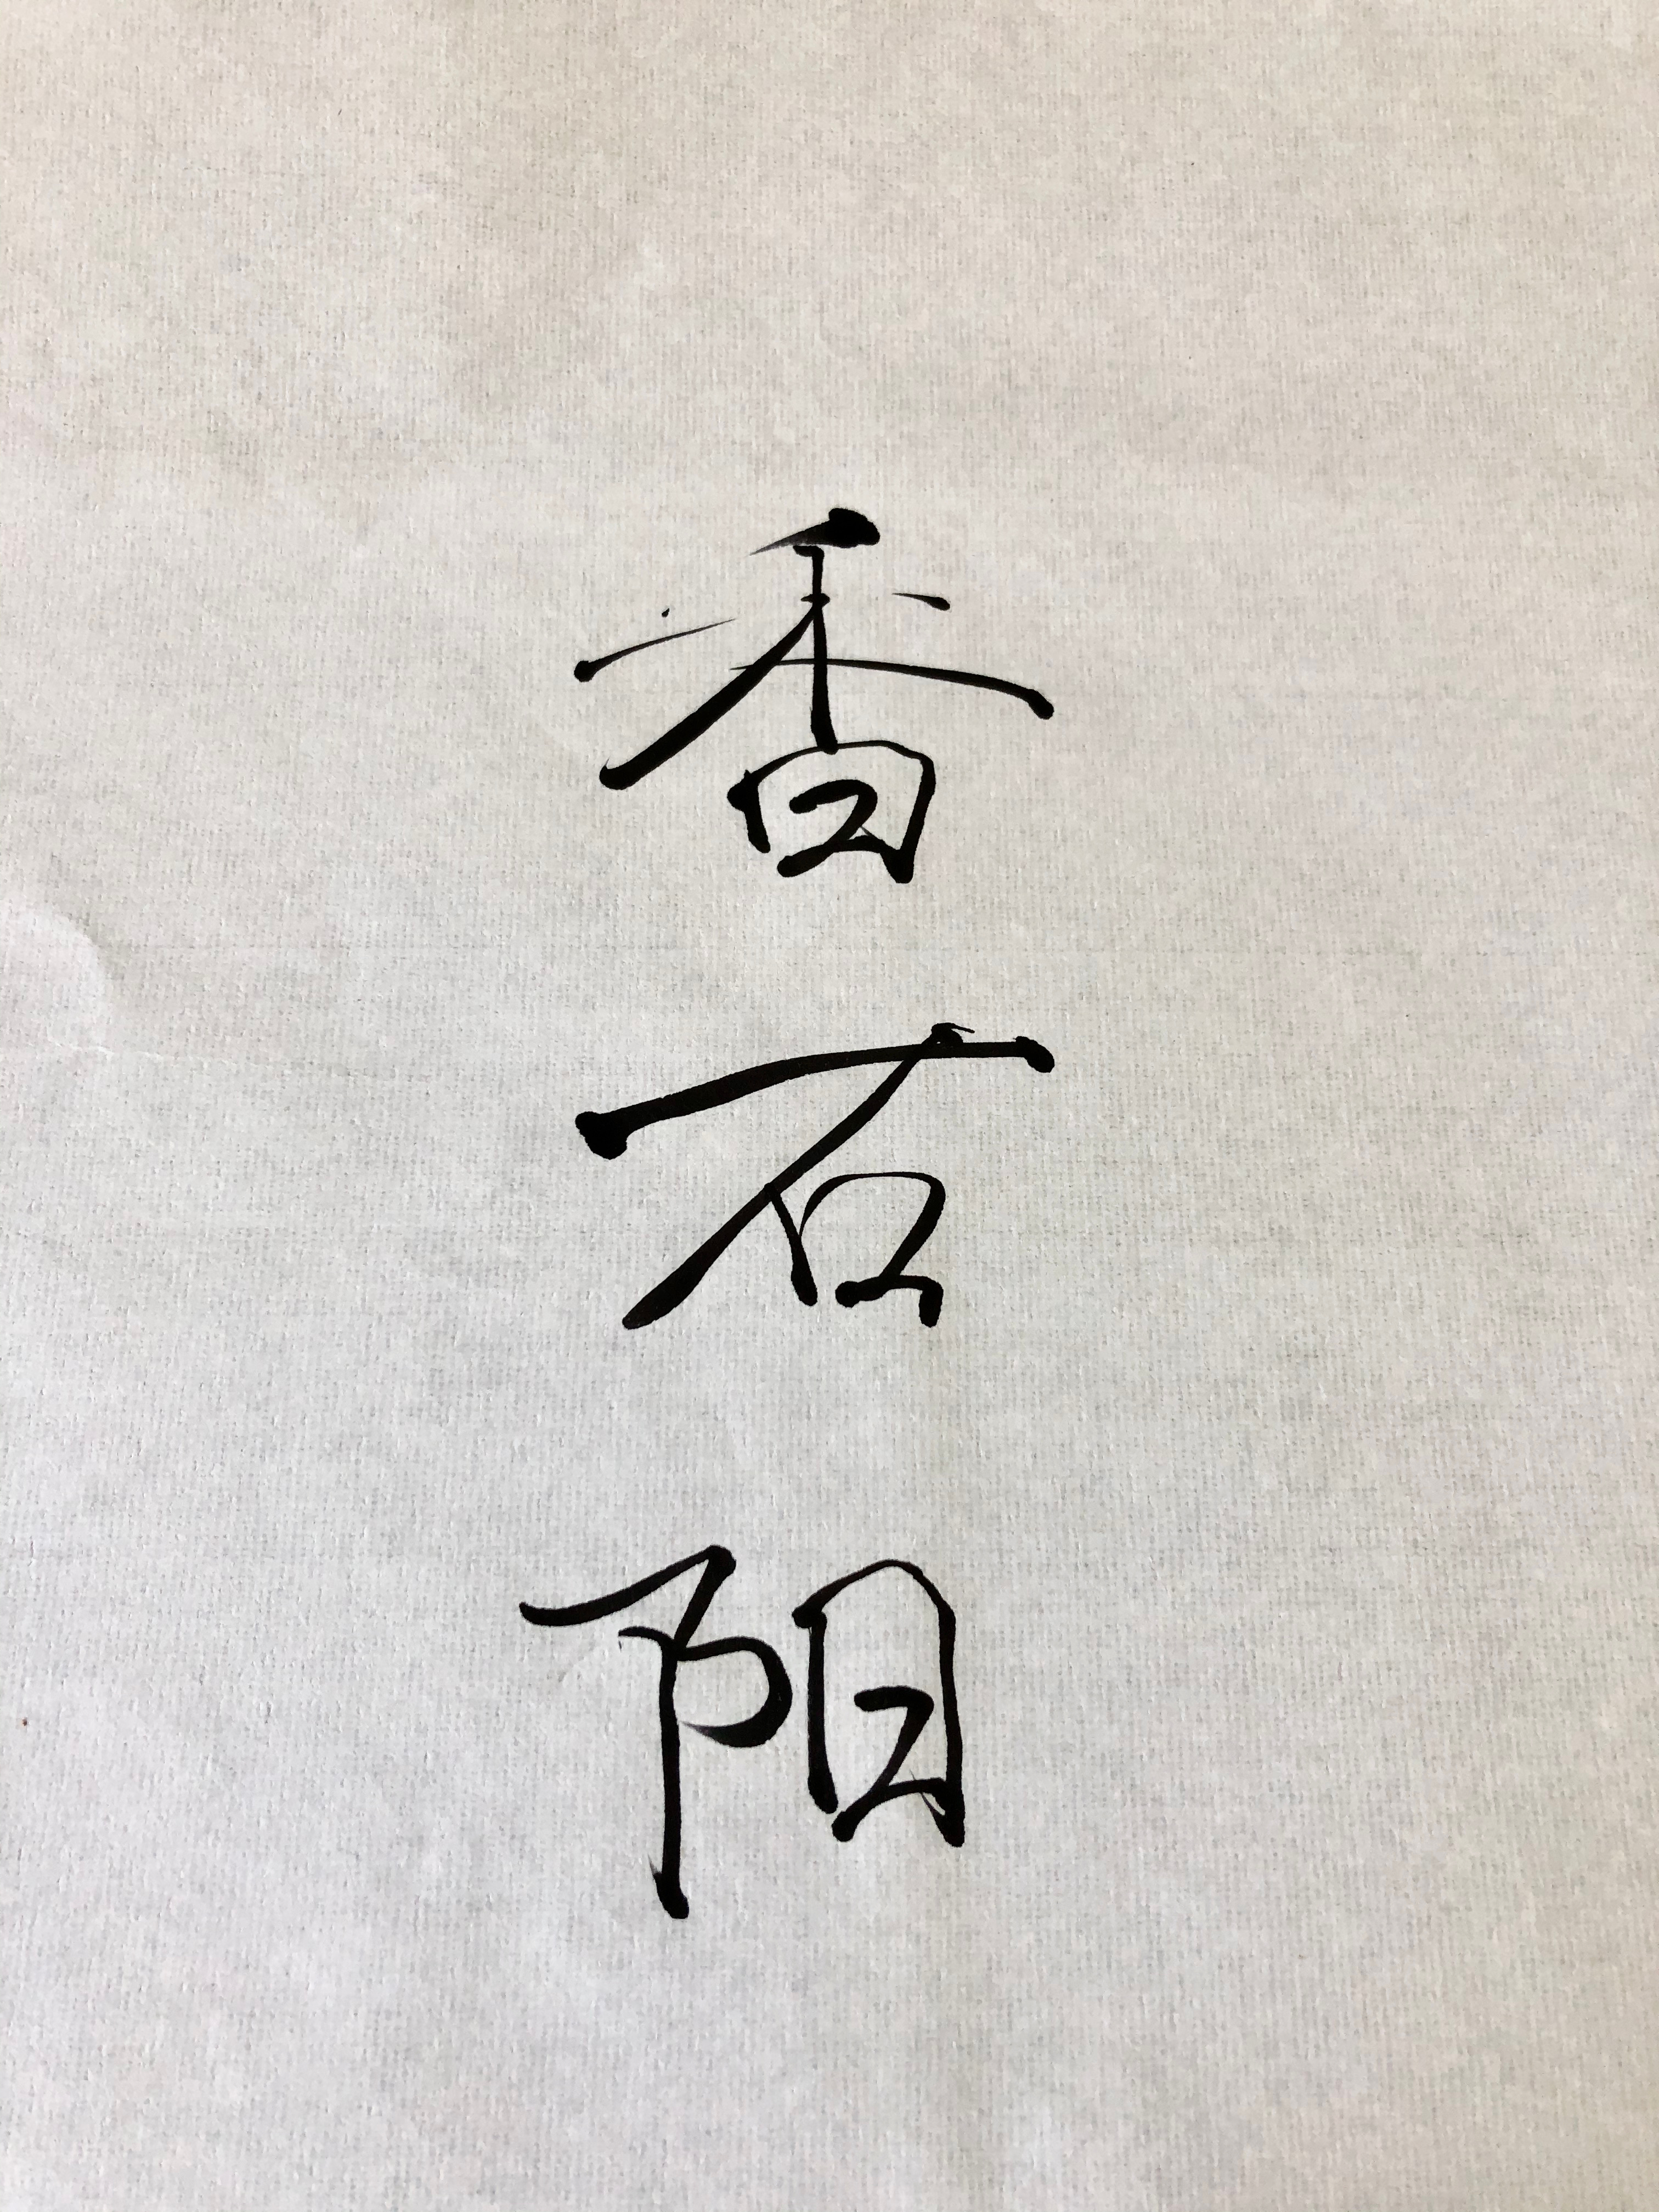 香石阳